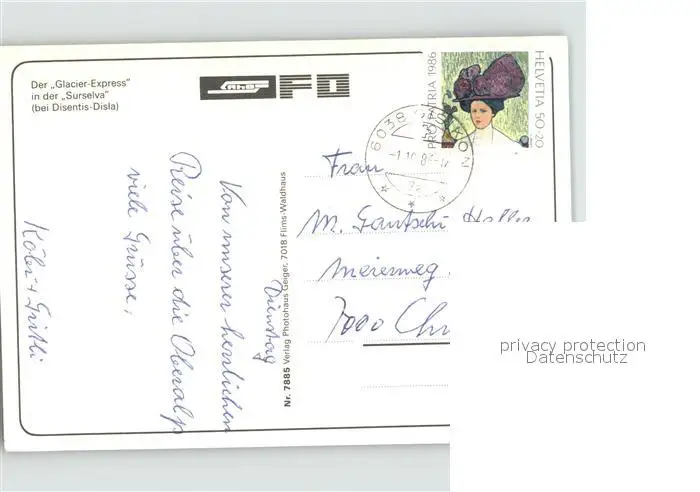 Der „Glacier-Express"
in der „Surselva"
(bei Disentis-Disla)
FO
PRO PATRIA 1986
HELVETIA 50+20
6038
-1.10.8
Dienstag
Von unserer herrlichen
Reise über die Oberalp
viele Grüsse,
Köbi + Gritli
Nr. 7885 Verlag Photohaus Geiger, 7018 Flims-Waldhaus
Frau
M. Gantschi-Haller
Meierweg
7000 Chu
privacy protection
Datenschutz